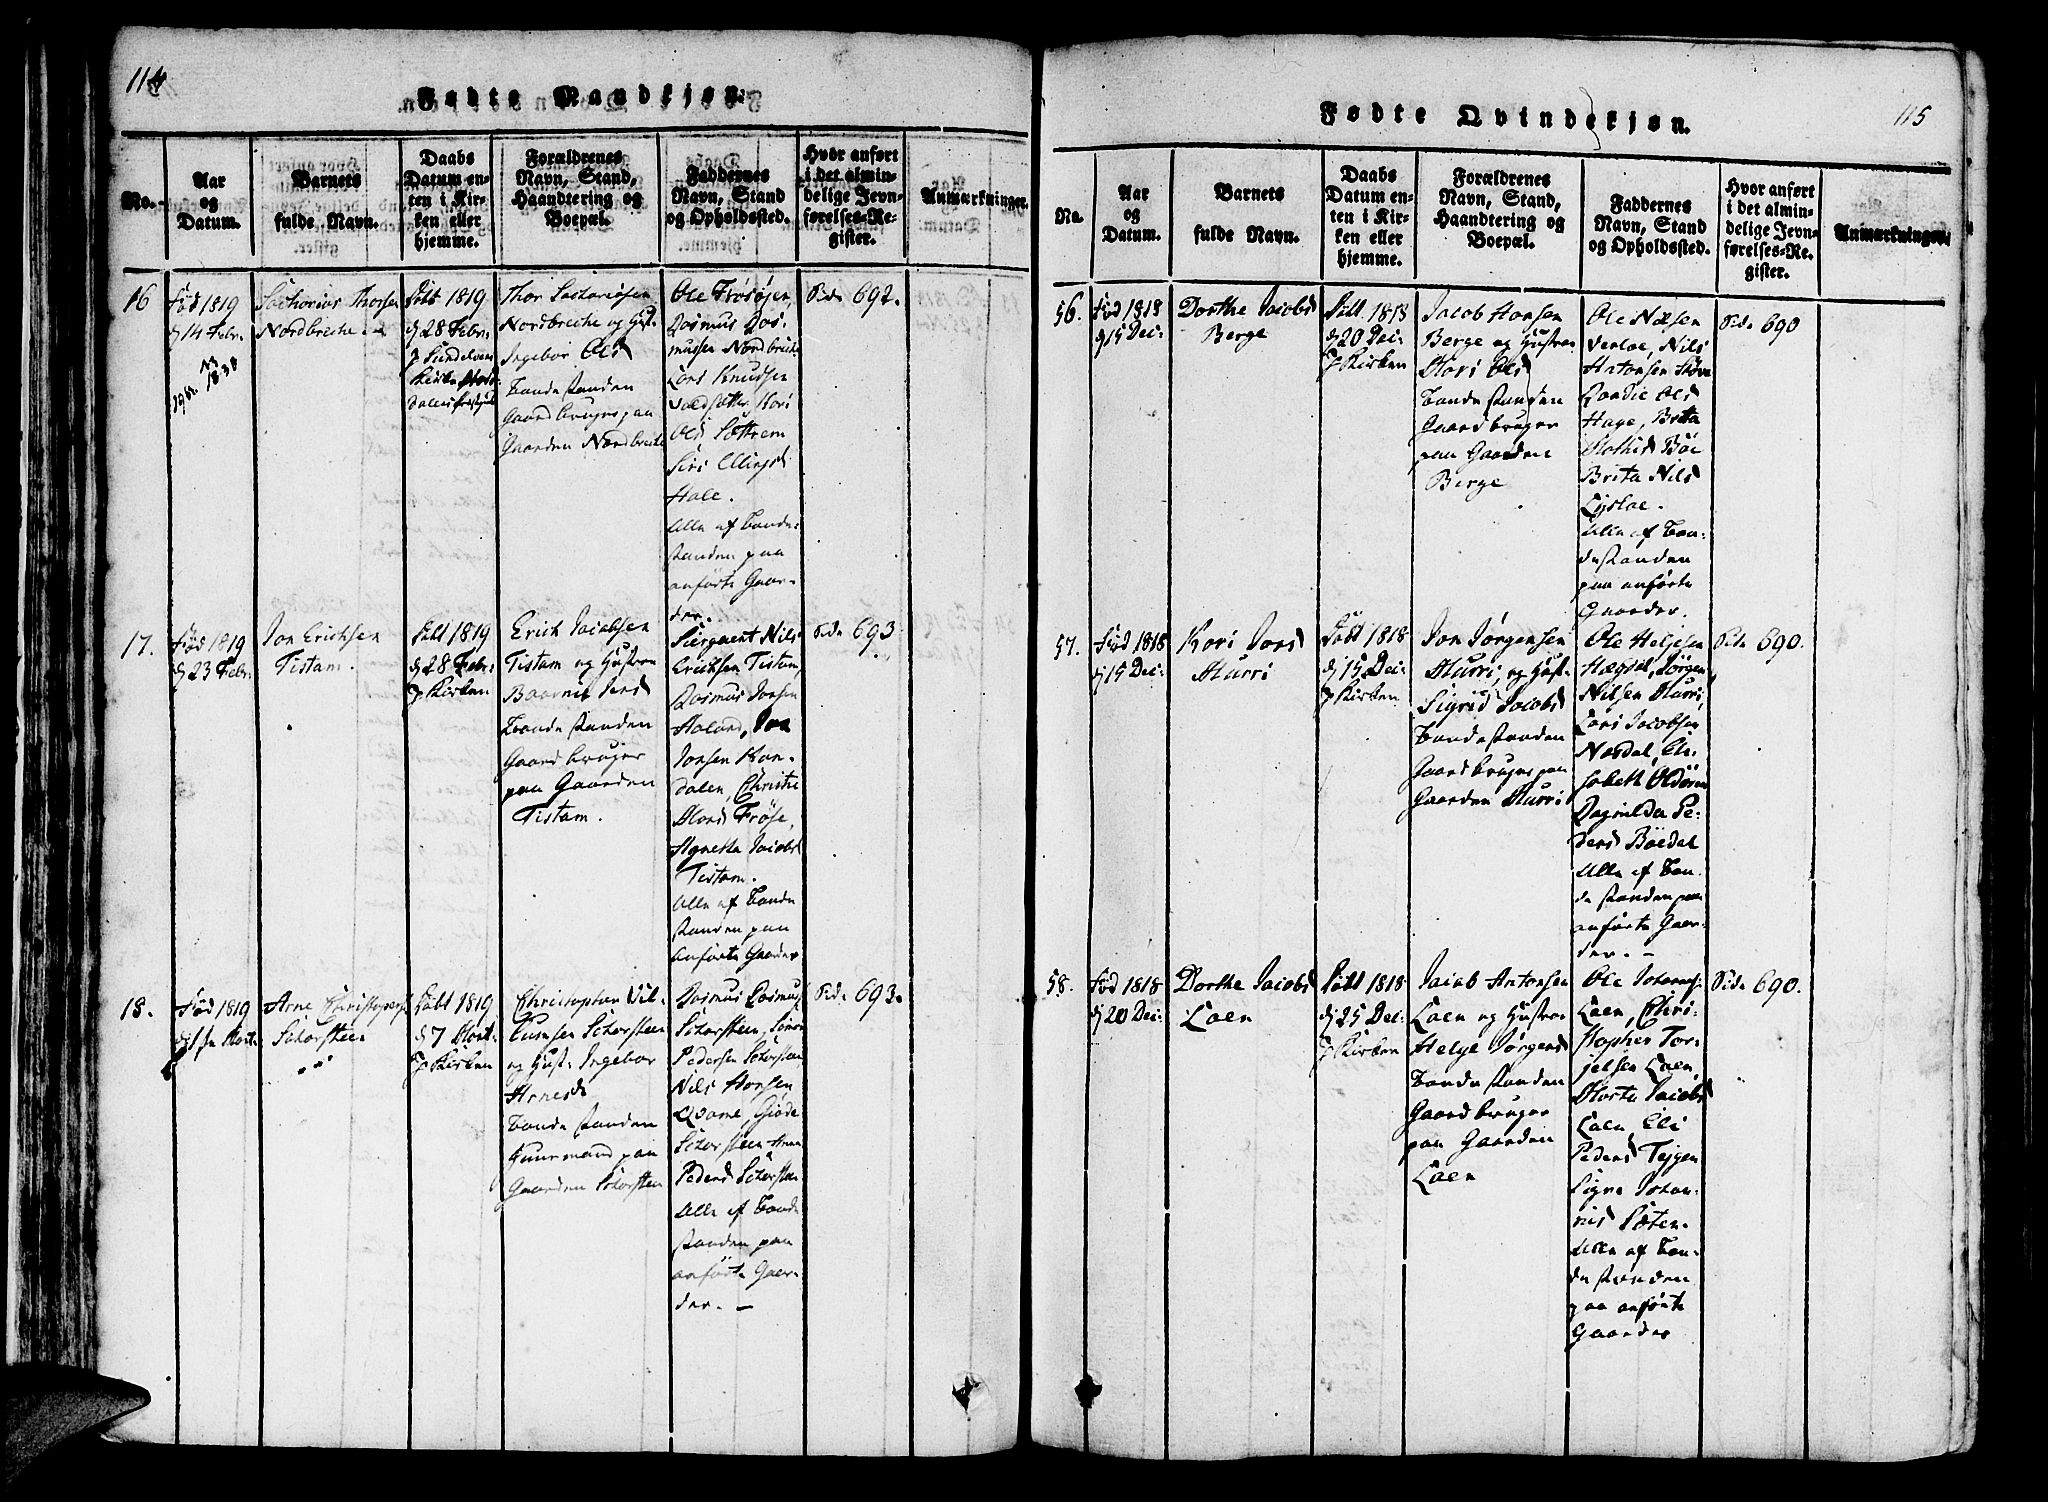 114
Fødte Mandkjøn.
No.
Aar
og
Datum.
Barnets
fulde Navn.
Daabs
Datum en-
ten i Kir-
ken eller
hjemme.
Forældrenes
Navn, Stand,
Haandtering og
Boepæl.
Faddernes
Navn, Stand
og Opholdssted.
Hvor anført
i det almin-
delige Jevn-
førelses-Re-
gister.
Anmærkninger.
16
Fød 1819
d 14 Febr:
1838
Zacharias Thorsen
Nordbrecke
Døbt 1819
d 28 Febr:
Thor Sachariesen
Nordbrecke og Hust:
Ingebor Ols
Bondestanden
Gaardbruger paa
Gaarden Nordbrecke
Ole Frøsøien,
Rasmus Ras-
mussen Nordbrecke
Lars Knudsen
Kari
Ols Sættrem
Siri Ellings
Hole.
Alle af Bonde-
standen paa
anførte Gaar-
der.
Side 692.
17.
Fød 1819
d 23 Febr:
Jon Ericksen
Tistam.
Døbt 1819
d 28 Febr:
J Kirken
Erick Jacobsen
Tistam og Hustroe
Jons
Bondestanden
Gaardbruger
paa Gaarden
Tistam.
Siergeant Nils
Ericksen Tistam,
Rasmus Jonsen
Haland, Jon
Jonsen Kan-
dalen, Christie
Mons Frøse,
Agnetha Jacobs
Tistam.
Alle af Bonde
standen paa
anførte Gaarder
Side 693.
18.
Fød 1819
d 1ste Mart:
Arne Christophers:
Schorsteen
Døbt 1819
d 7 Mart:
J Kirken
Christopher Vil-
lumsen Schorsteen
og Hust: Ingebor
Arnes
Bondestanden
Huusmand paa
Gaarden Schorsteen
Rasmus Rasmus
Schorsteen, Simon
Pedersen Schorsteen
Nils Hansen
Qvame, Giøde
Schorsteen Anna
Peders Schorsteen
Alle af Bonde
standen paa
anførte Gaar-
der. —
Side 693.
115
Fødte Qvindekjøn.
No.
Aar
og
Datum.
Barnets
fulde Navn.
Daabs
Datum en-
ten i Kir-
ken eller
hjemme.
Forældrenes
Navn, Stand,
Haandtering og
Boepæl.
Faddernes
Navn, Stand
og Opholdssted.
Hvor anført
i det almin-
delige Jevn-
førelses-Re-
gister.
Anmærkninger.
56.
Fød 1818
d 15 Dec:
Dorthe Jacobs
Berge
Døbt 1818
d 20 Dec:
J Kirken
Jacob Hansen
Berge og Hustroe
Mari Ols
Bondestanden
Gaardbruger
paa Gaarden
Berge
Ole Næsen
Verloe, Nils
Antonsen Støve
Randie Ols
Hage, Brita
Mathis Böe
Brita Nils
Lysloe.
Alle af Bon-
destanden
paa anførte
Gaarder.
Side 690
57.
Fød 1818
d 15 Dec:
Kari Jons
Murri
Døbt 1818
d 15 Dec:
J Kirken
Jon Jørgensen
Murri, og Hust:
Sigrid Jacobs
Bondestanden
Gaardbruger paa
Gaarden Murri
Ole Helgesen
Hægdal, Jørgen
Nilsen Murri,
Lars Jacobsen
Nordal, Eli-
sabeth Oldøren
Ragnilda Pe-
ders Böedal
Alle af Bon-
destanden paa
anførte Gaar-
der. —
Side 690.
58.
Fød 1818
d 20 Dec:
Dorthe Jacobs
Loen
Døbt 1818
d 25 Dec:
J Kirken
Jacob Antonsen
Loen og Hustroe
Helge Jørgens
Bondestanden
Gaardbruger
paa Gaarden
Loen
Ole Johanns:
Loen, Chri-
stopher Tor-
jelsen Loen,
Marta Jacobs
Loen, Eli
Peders Tejgen
Signe Johan-
nis Sæten.
Alle af Bon-
destanden
paa anførte
Gaarder
Side 690.